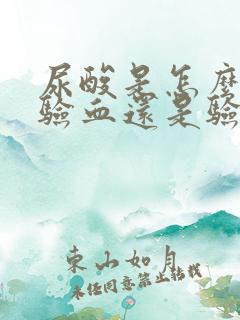 尿酸是怎麼
驗血還是驗
東山如月
未經同意禁止轉載